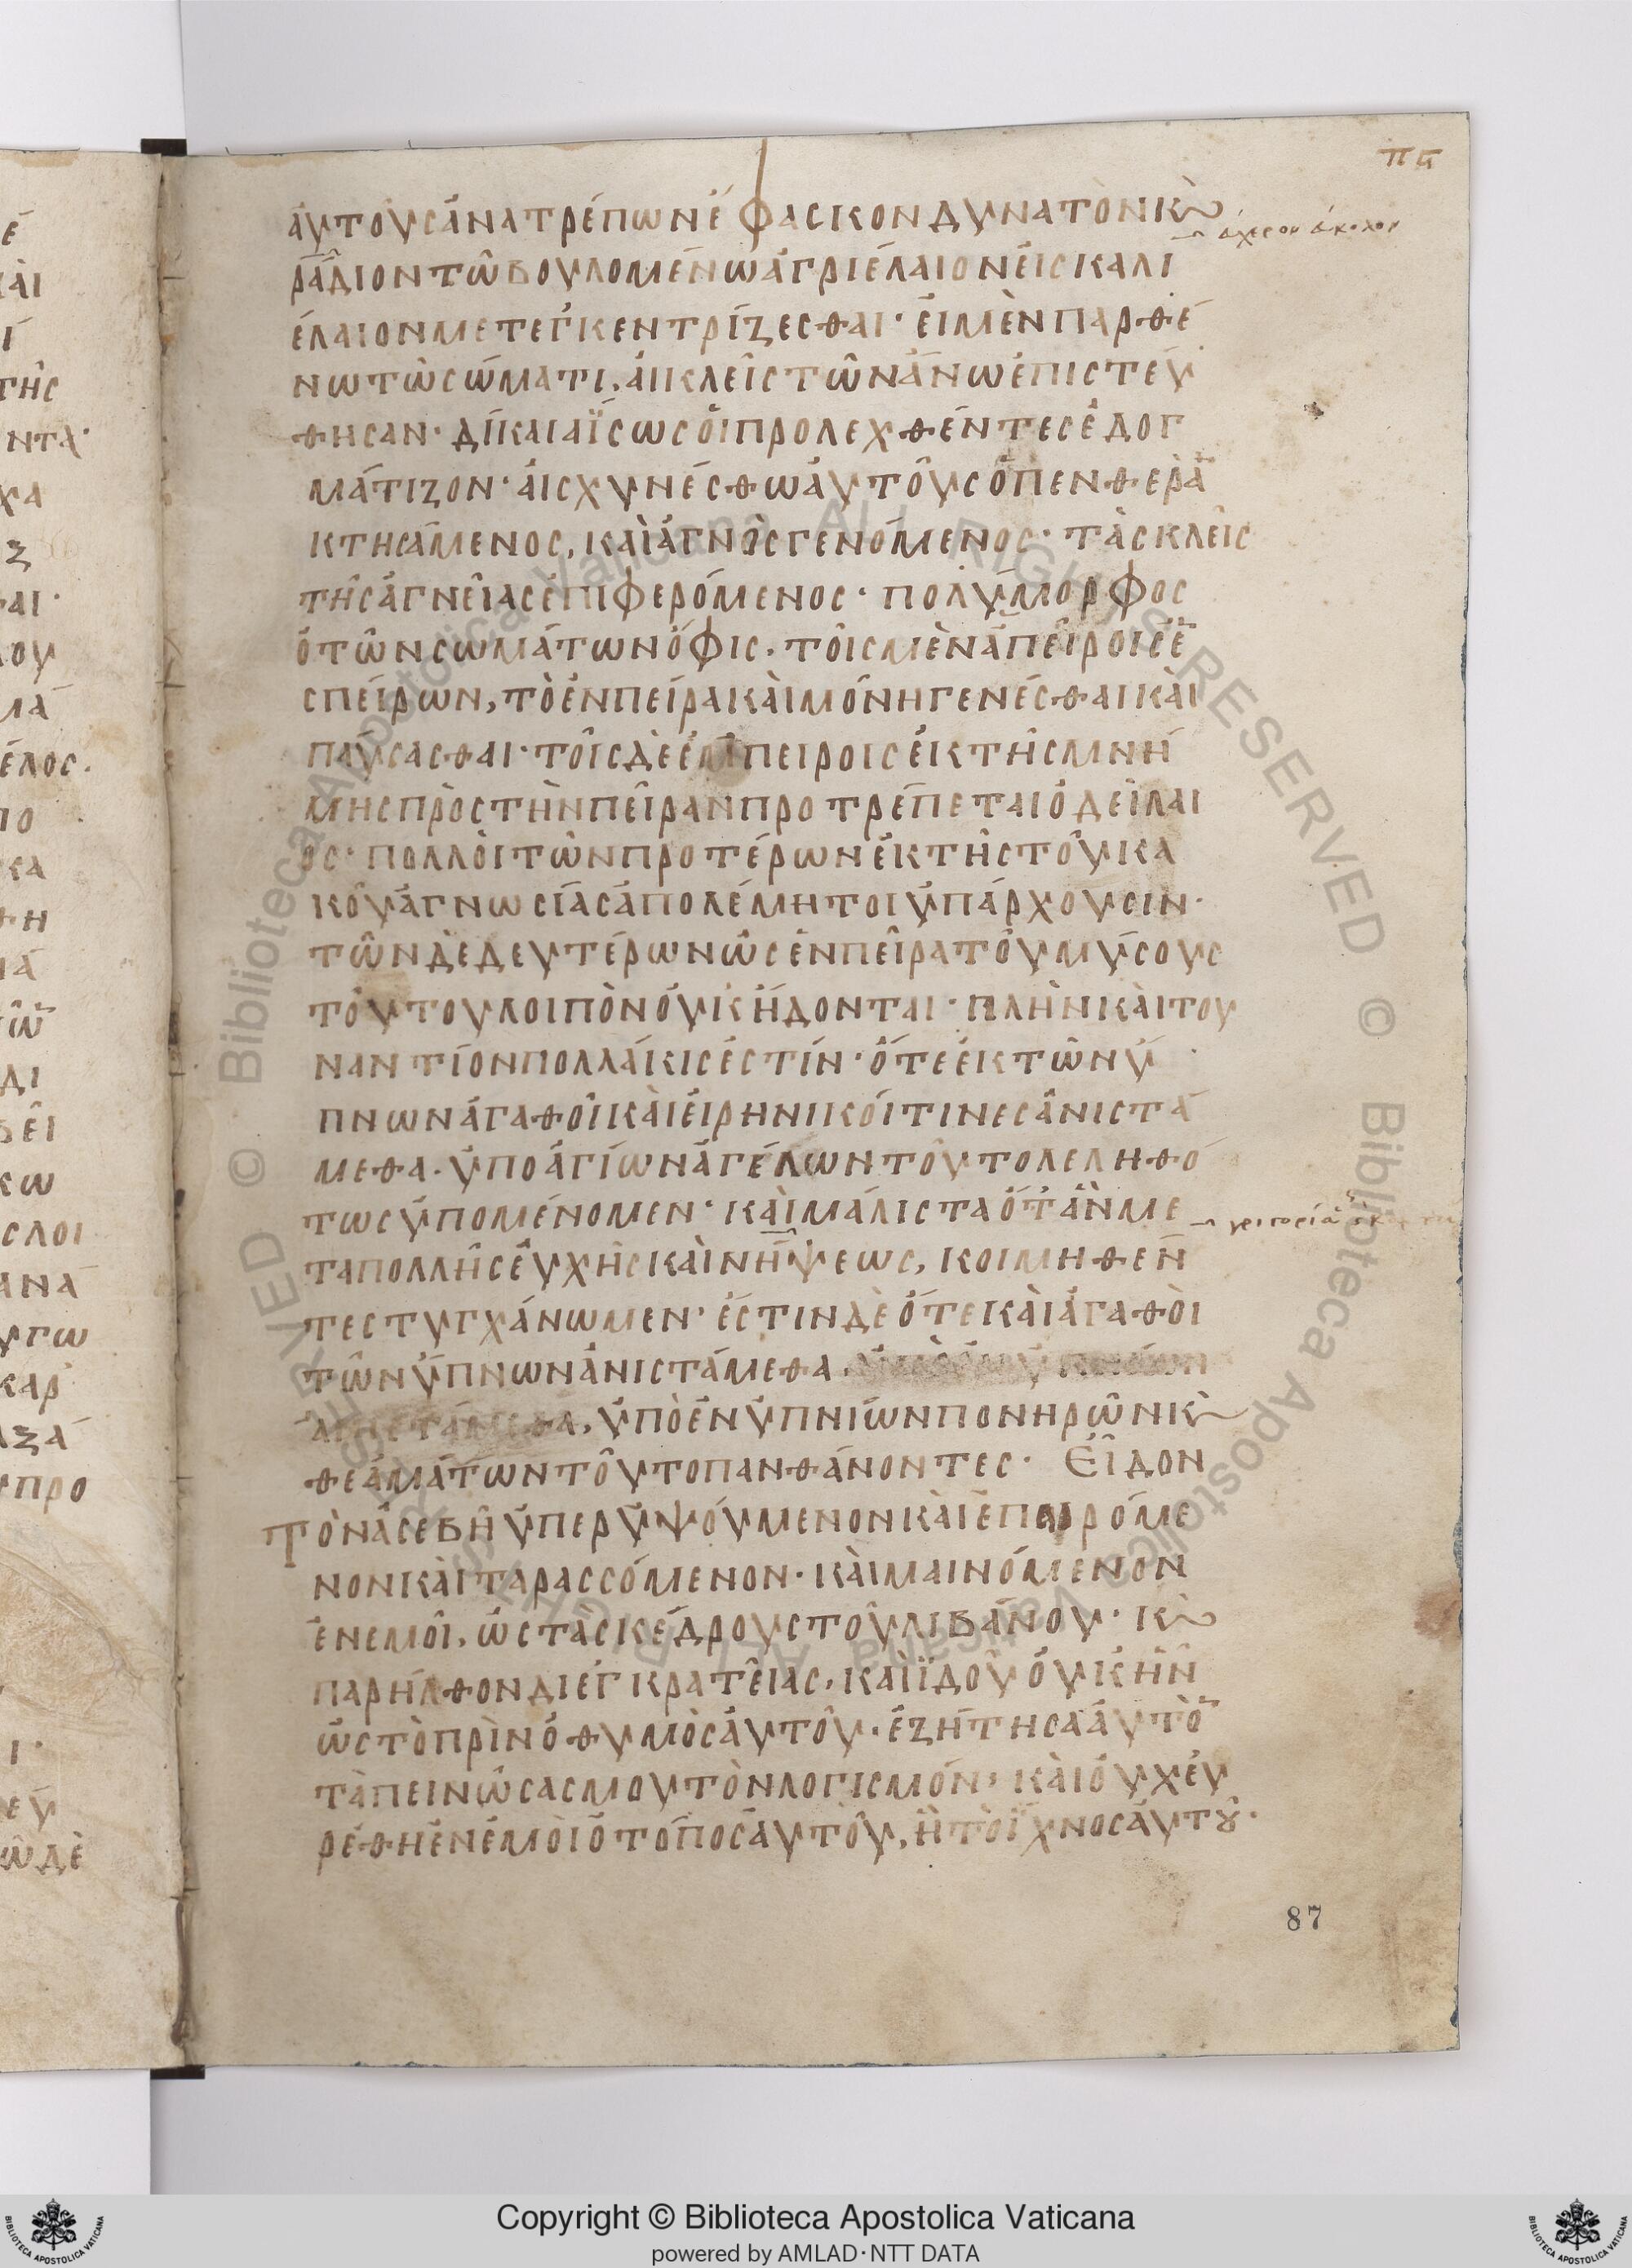 πϛ
ἀυτοὺσἀνατρέπωνἔφασκονδυνατὸνκ(αὶ)
ῥάδιοντῶβουλομένωἀγριέλαιονἐισκαλι
έλαιονμετεγκεντρίζεσθαι· ἐιμὲνπαρθέ
νωτῶσώματι, ἁικλεῖςτῶνἄνωἐπιστεύ
θησαν· δίκαιαἴσωςὁιπρολεχθέντεςἐδογ
μάτιζον· ἀισχυνέσθωἀυτοὺςὁπενθερὰ
κτησάμενος, καὶἁγνὸςγενόμενος· τὰςκλεῖς
τῆςἁγνείαςἐπιφερόμενος· πολύμορφος
ὁτῶνσωμάτωνὄφις· τοῖςμὲνἀπείροιςἐ
σπείρων, τὸἐνπείρακαὶμόνηγενέσθαικαὶ
παύσασθαι· τοῖςδὲἐμπείροιςἐκτῆςμνή
μηςπρὸςτὴνπεῖρανπροτρέπεταιὁδείλαι
ος· πολλοὶτῶνπροτέρωνἐκτῆςτοῦκα
κοῦἀγνωσίαςἀπολέμητοιὑπάρχουσιν·
τῶνδὲδευτέρωνὡςἐνπείρατοῦμύσους
τούτουλοιπὸνοὐκἥδονται· πλὴνκαὶτοὐ
ναντίονπολλάκιςἐστίν· ὅτεἐκτῶνὕ
πνωνἀγαθοὶκαὶεἰρηνικοίτινεςἀνιστά
μεθα· ὑπὸἁγίωνἀγέλωντοῦτολεληθό
τωςὑπομένομεν· καὶμάλισταὅτ'ἂνμε
ταπολλῆςεὐχῆςκαὶνήψεως, κοιμηθέν
τεςτυγχάνωμεν· ἔστινδὲὅτεκαὶἀγαθοὶ
τῶνὕπνωνἀνιστάμεθα,
ὑπὸἐνυπνίωνπονηρῶνκ(αὶ)
θεαμάτωντοῦτοπανθάνοντες· Εἶδον
Τὸνἀσεβῆὑπερυψούμενονκαὶἐπαιρόμε
νονκαὶταρασσόμενον· καὶμαινόμενον
ἐνεμοὶ, ὡςτὰςκέδρουςτοῦλιβάνου· κ(αὶ)
παρῆλθονδιεγκρατείας, καὶϊδοὺοὐκἦν
ὡςτὸπρὶνὁθυμὸςἀυτοῦ· ἐζήτησαἀυτὸ
ταπεινώσαςμουτὸνλογισμόν, καὶοὐχεὑ
ρέθηἐνἐμοὶὁτόποςἀυτοῦ, ἢτὸἴχνοςἀυτȣ͂·
87
© Biblioteca Apostolica Vaticana ALL RIGHTS RESERVED
Copyright © Biblioteca Apostolica Vaticana
powered by AMLAD·NTT DATA
BIBLIOTECA APOSTOLICA VATICANA
BIBLIOTECA APOSTOLICA VATICANA